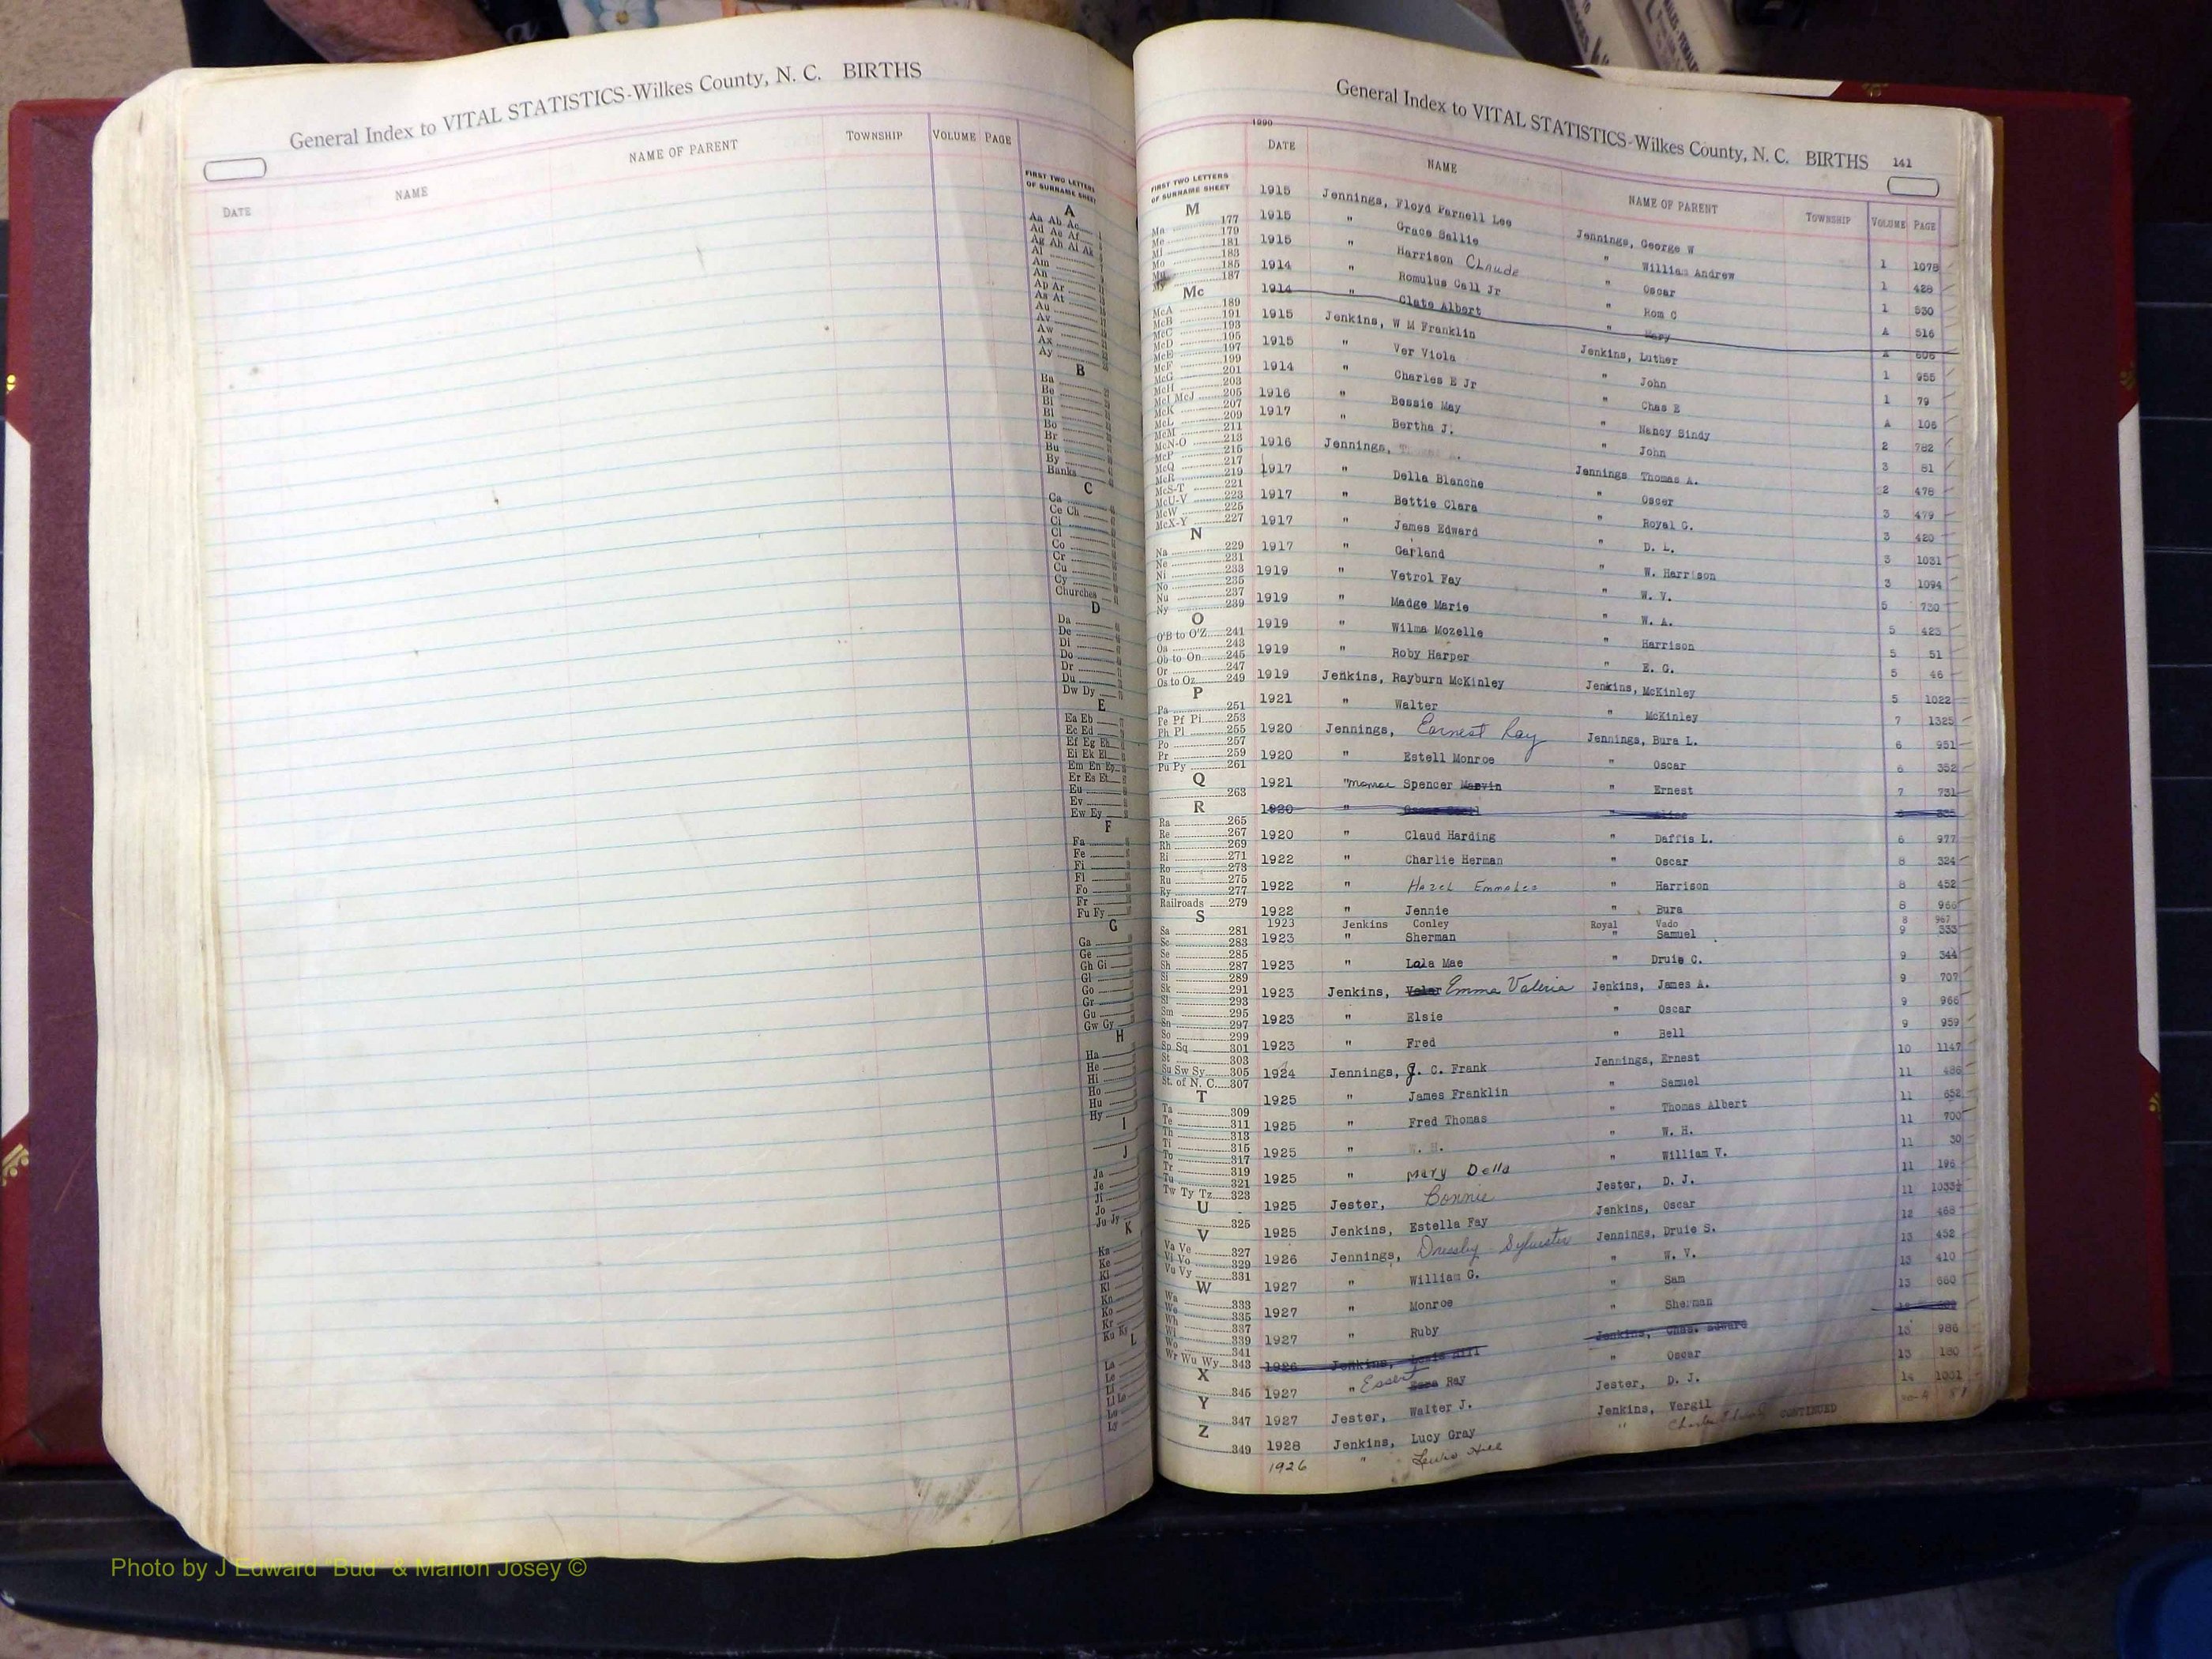 General Index to VITAL STATISTICS-Wilkes County, N. C. BIRTHS
DATE NAME NAME OF PARENT TOWNSHIP VOLUME PAGE
FIRST TWO LETTERS
OF SURNAME SHEET
A
Aa Ab Ac
Ad Ae Af
Ag Ah Ai Ak
Al
Am
An
Ap Ar
As At
Au
Av
Aw
Ax
Ay
B
Ba
Be
Bi
Bl
Bo
Br
Bu
By
Banks
C
Ca
Ce Ch
Ci
Cl
Co
Cr
Cu
Cy
Churches
D
Da
De
Di
Do
Dr
Du
Dw Dy
E
Ea Eb
Ec Ed
Ef Eg Eh
Ei Ek El
Em En Ep
Er Es Et
Eu
Ev
Ew Ey
F
Fa
Fe
Fi
Fl
Fo
Fr
Fu Fy
G
Ga
Ge
Gh Gi
Gl
Go
Gr
Gu
Gw Gy
H
Ha
He
Hi
Ho
Hu
Hy
I
J
Ja
Je
Ji
Jo
Ju Jy
K
Ka
Ke
Ki
Kl
Kn
Ko
Kr
Ku Ky
L
La
Le
Li
Ll Lo
Lu
Ly
General Index to VITAL STATISTICS-Wilkes County, N. C. BIRTHS 141
1990
FIRST TWO LETTERS
OF SURNAME SHEET
DATE NAME NAME OF PARENT TOWNSHIP VOLUME PAGE
M
Ma 177
Me 179
Mi 181
Mo 183
Mu 185
My 187
Mc
McA 189
McB 191
McC 193
McD 195
McE 197
McF 199
McG 201
McH 203
McI McJ 205
McK 207
McL 209
McM 211
McN-O 213
McP 215
McQ 217
McR 219
McS-T 221
McU-V 223
McW 225
McX-Y 227
N
Na 229
Ne 231
Ni 233
No 235
Nu 237
Ny 239
O
O'B to O'Z 241
Oa 243
Ob to On 245
Or 247
Os to Oz 249
P
Pa 251
Pe Pf Pi 253
Ph Pl 255
Po 257
Pr 259
Pu Py 261
Q
263
R
Ra 265
Re 267
Rh 269
Ri 271
Ro 273
Ru 275
Ry 277
Railroads 279
S
Sa 281
Sc 283
Se 285
Sh 287
Si 289
Sk 291
Sl 293
Sm 295
Sn 297
So 299
Sp Sq 301
St 303
Su Sw Sy 305
St. of N. C. 307
T
Ta 309
Te 311
Th 313
Ti 315
To 317
Tr 319
Tu 321
Tw Ty Tz 323
U
325
V
Va Ve 327
Vi Vo 329
Vu Vy 331
W
Wa 333
We 335
Wh 337
Wi 339
Wo 341
Wr Wu Wy 343
X
345
Y
347
Z
349
1915 Jennings, Floyd Parnell Lee Jennings, George W 1 1078
1915 " Grace Sallie " William Andrew 1 428
1915 " Harrison Claude " Oscar 1 530
1914 " Romulus Call Jr " Rom C A 516
1914 " Clate Albert " Mary A 606
1915 Jenkins, W M Franklin Jenkins, Luther 1 955
1915 " Ver Viola " John 1 79
1914 " Charles E Jr " Chas E A 106
1916 " Bessie May " Nancy Sindy 2 782
1917 " Bertha J. " John 3 81
1916 Jennings, Jennings Thomas A. 2 478
1917 " Della Blanche " Oscar 3 479
1917 " Bettie Clara " Royal G. 3 420
1917 " James Edward " D. L. 3 1031
1917 " Garland " W. Harrison 3 1094
1919 " Vetrol Fay " W. V. 5 730
1919 " Madge Marie " W. A. 5 423
1919 " Wilma Mozelle " Harrison 5 51
1919 " Roby Harper " E. G. 5 46
1919 Jenkins, Rayburn McKinley Jenkins, McKinley 5 1022
1921 " Walter " McKinley 7 1325
1920 Jennings, Earnest Ray Jennings, Bura L. 6 951
1920 " Estell Monroe " Oscar 6 352
1921 " Spencer Marvin " Ernest 7 731
1920 "
1920 " Claud Harding " Daffis L. 6 977
1922 " Charlie Herman " Oscar 8 324
1922 " Hazel " Harrison 8 452
1922 " Jennie " Bura 8 966
1923 Jenkins Conley Royal Vado 8 967
1923 " Sherman " Samuel 9 333
1923 " Lala Mae " Druie C. 9 344
1923 Jenkins, Emma Valeria Jenkins, James A. 9 707
1923 " Elsie " Oscar 9 966
1923 " Fred " Bell 9 959
1924 Jennings, J. C. Frank Jennings, Ernest 10 1147
1925 " James Franklin " Samuel 11 486
1925 " Fred Thomas " Thomas Albert 11 652
1925 " W. H. " W. H. 11 700
1925 " Mary Della " William V. 11 30
1925 Jester, Bonnie Jester, D. J. 11 196
1925 Jenkins, Estella Fay Jenkins, Oscar 11 1033½
1926 Jennings, Sylvester Jennings, Druie S. 12 468
1927 " William G. " W. V. 13 452
1927 " Monroe " Sam 13 410
1927 " Ruby " Sherman 13 660
1926 Jenkins, Jenkins, Chas. Edward
1927 " Essert Ray " Oscar 13 986
1927 Jester, Walter J. Jester, D. J. 13 160
1928 Jenkins, Lucy Gray Jenkins, Vergil 14 1031
1926 " Lewis Hill " CONTINUED
Photo by J Edward "Bud" & Marion Josey ©